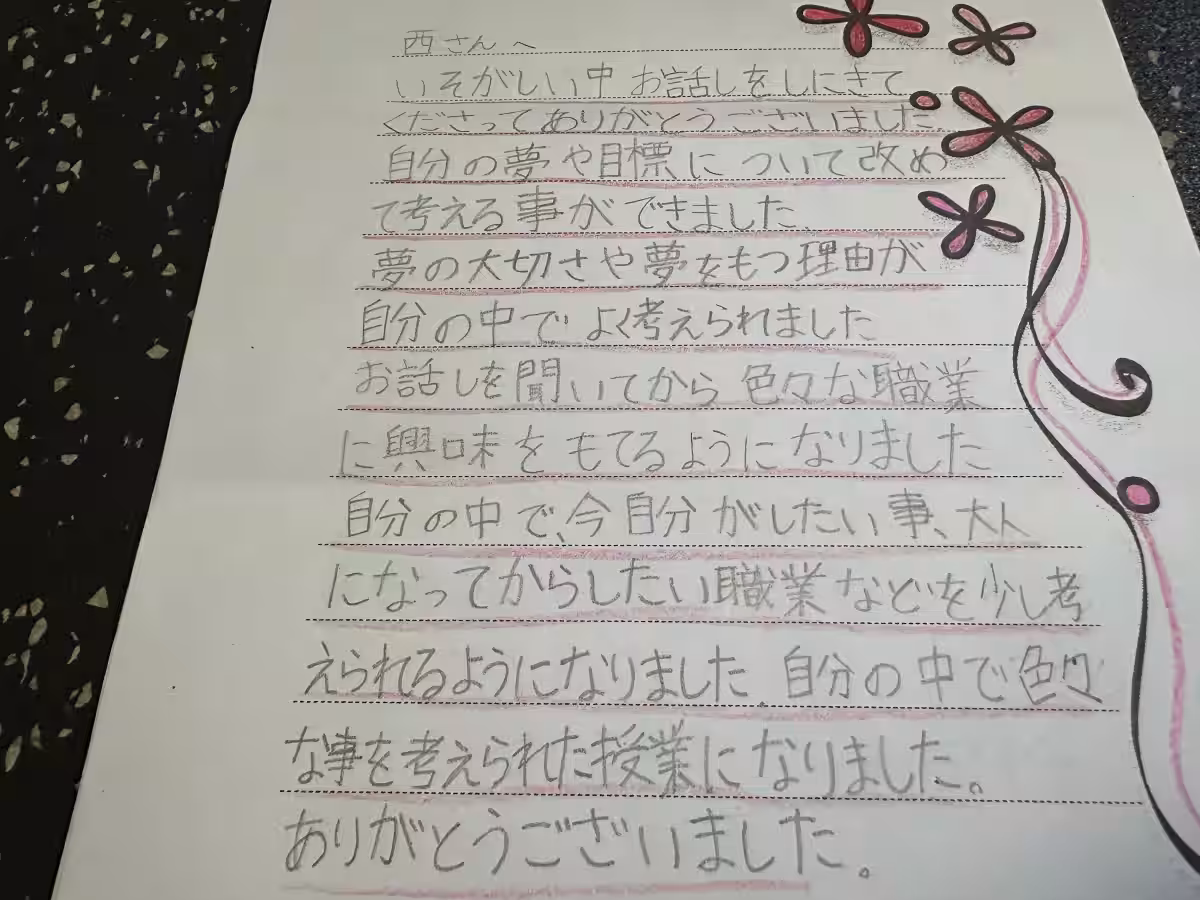 西さんへ
いそがしい中 お話しをしにきて
くださってありがとうございました。
自分の夢や目標に ついて改め
て考える事ができました。
夢の大切さや夢をもつ理由が
自分の中でよく考えられました
お話しを聞いてから 色々な職業
に興味をもてるようになりました
自分の中で、今自分がしたい事、大人
になってからしたい職業などを少し考
えられるようになりました。自分の中で色々
な事を考えられた授業になりました。
ありがとうございました。